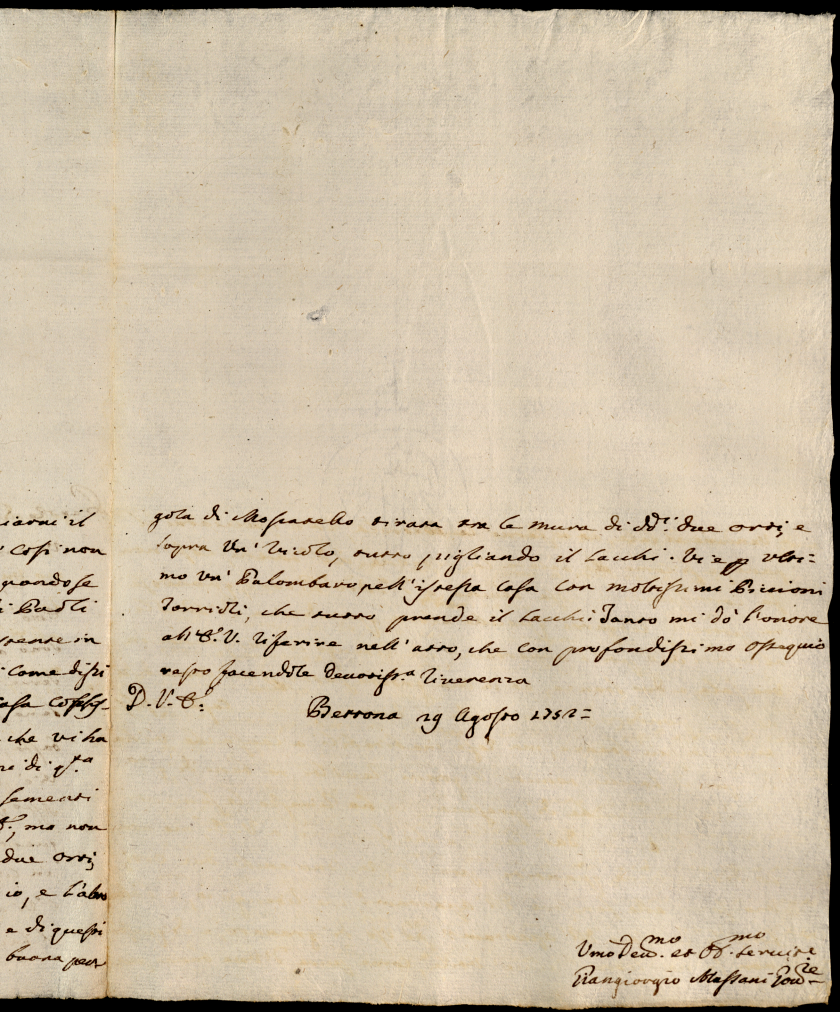 iarni il
così non
quando se
i Paoli
stense in
come dissi
casa
che vi ha
ne di q.ta
sementi
ma non
due orti
io, e l'altro
e di questi
buona
gola di Moscatello tirata tra le mura di dd.i due orti, e
sopra un' vicolo, tutto pigliando il Sacchi. Vi è p ulti=
mo un' Palombaro nell'istessa casa con moltissimi Piccioni
Torrioli, che tutto prende il Sacchi. Tanto mi dò l'onore
all'E. V. riferire nell'atto, che con profondissimo ossequio
resto facendole devotiss.a riverenza
D. V. E.
Bettona 29 Agosto 1752=
Umo Devmo. et Obmo. Servite
Giangiorgio Massani Govre